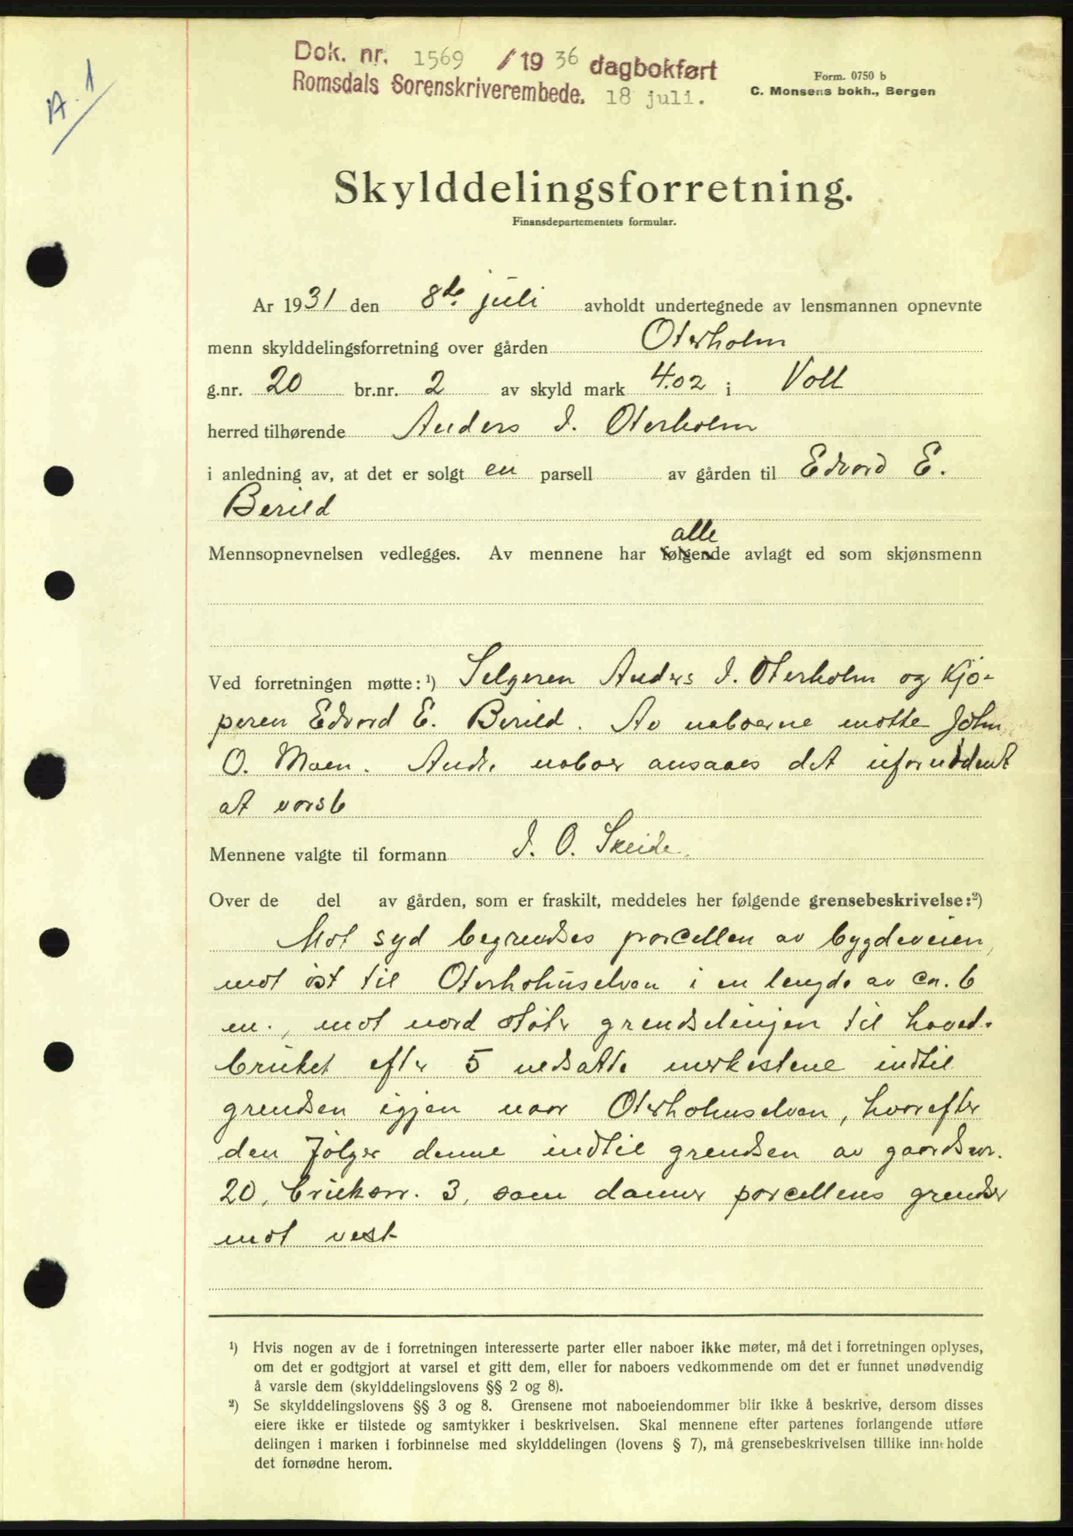 A. 1
Dok. nr. 1569 /1936 dagbokført
Romsdals Sorenskriverembede. 18 juli.
Form. 0750 b
C. Monsens bokh., Bergen
Skylddelingsforretning.
Finansdepartementets formular.
År 1931 den 8de juli avholdt undertegnede av lensmannen opnevnte
menn skylddelingsforretning over gården Oterholm
g.nr. 20 br.nr. 2 av skyld mark 4.02 i Voll
herred tilhørende Anders I. Oterholm
i anledning av, at det er solgt en parsell av gården til Edvard E.
Berild
alle
Mennsopnevnelsen vedlegges. Av mennene har følgende avlagt ed som skjønsmenn
Ved forretningen møtte: ¹) Selgeren Anders I. Oterholm og kjø-
peren Edvard E. Berild. Av naboerne møtte John
O. Moen. Andre naboer ansaaes det uforn​ødent
at varsle
Mennene valgte til formann I. O. Skeide.
Over de del av gården, som er fraskilt, meddeles her følgende grensebeskrivelse: ²)
Mot syd begrendses parcellen av bygdeveien,
mot øst til Oterholmselven i en lengde av ca. 6
m., mot nord støter grendselinjen til hoved-
bruket efter 5 nedsatte merkestene indtil
grendsen igjen naar Oterholmselven, hvorefter
den følger denne indtil grendsen av gaardsnr.
20, bruksnr. 3, som danner parcellens grendser
mot vest
¹) Hvis nogen av de i forretningen interesserte parter eller naboer ikke møter, må det i forretningen oplyses,
om det er godtgjort at varsel et gitt dem, eller for naboers vedkommende om det er funnet unødvendig
å varsle dem (skylddelingslovens §§ 2 og 8).
²) Se skylddelingslovens §§ 3 og 8. Grensene mot naboeiendommer blir ikke å beskrive, dersom disses
eiere ikke er tilstede og samtykker i beskrivelsen. Skal mennene efter partenes forlangende utføre
delingen i marken i forbinnelse med skylddelingen (lovens § 7), må grensebeskrivelsen tillike inneholde
det fornødne herom.